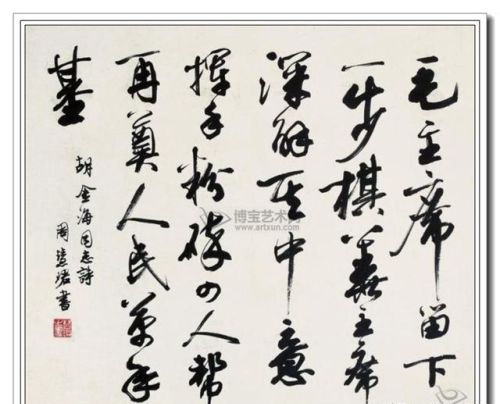 毛主席留下
一步棋華主席
深解其中意
揮手粉碎四人幫
再奠人民萬年
基
胡金海同志詩
周慧珺書
博宝艺术网
www.artxun.com